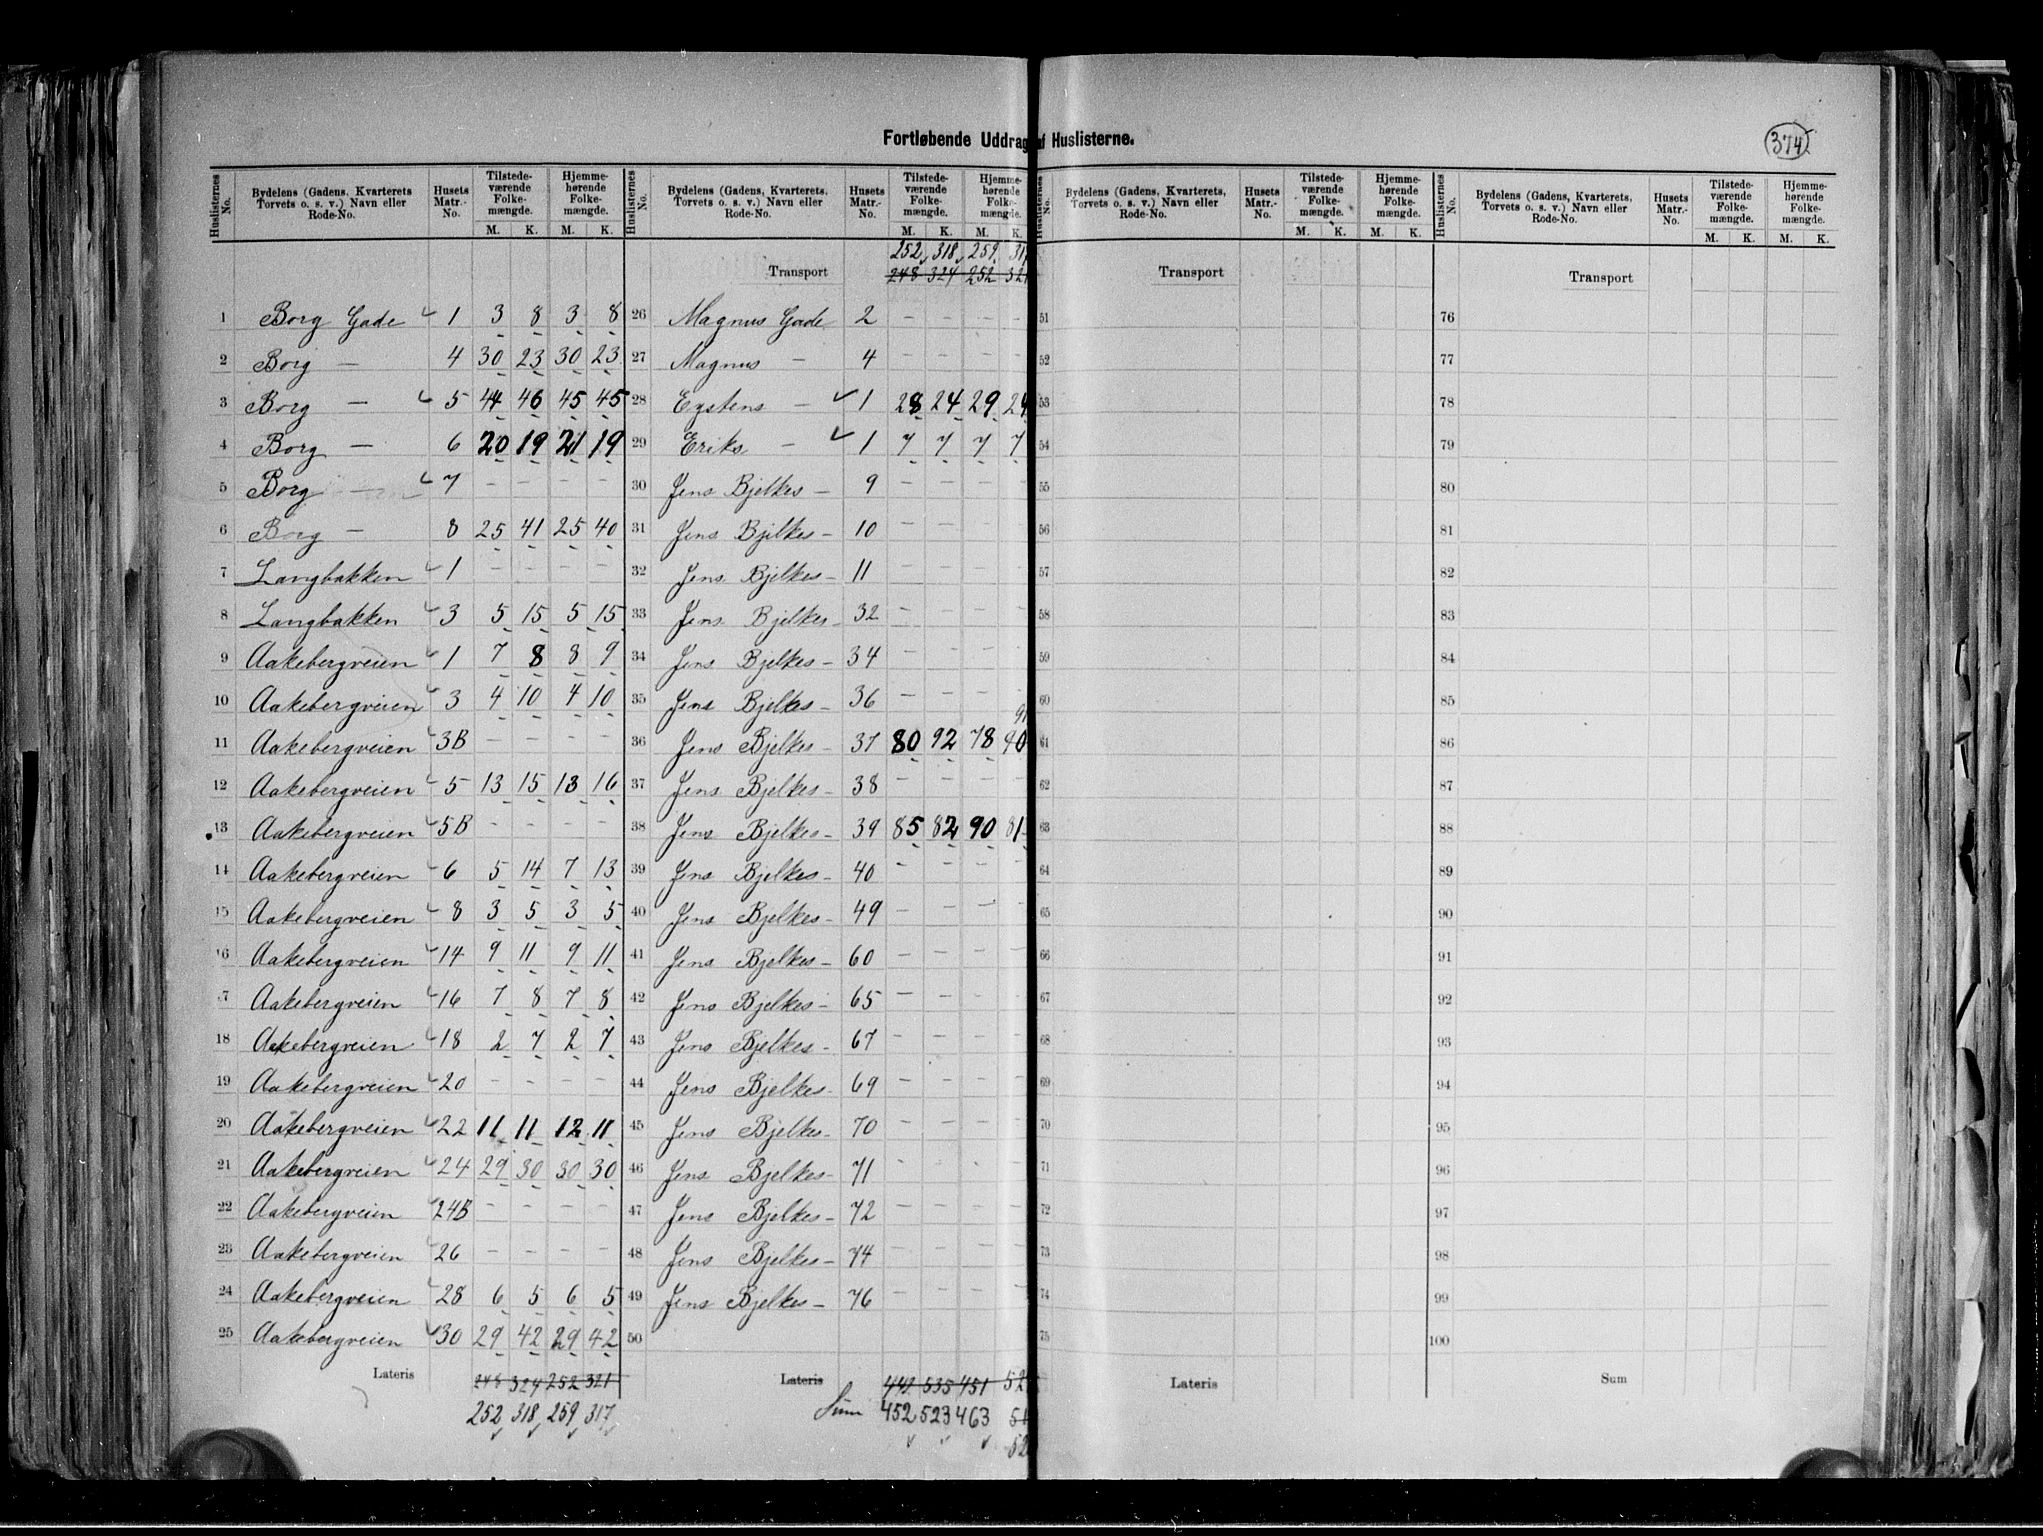 Fortløbende Uddrag af Huslisterne.
374
Huslisternes No. | Bydelens (Gadens, Kvarterets Torvets o. s. v.) Navn eller Rode-No. | Husets Matr.-No. | Tilstedeværende Folkemængde. M. K. | Hjemmehørende Folkemængde. M. K.
1 Borg Gade 1 3 8 3 8
2 Borg — 4 30 23 30 23
3 Borg — 5 44 46 45 45
4 Borg — 6 20 19 21 19
5 Borg — 7 – – – –
6 Borg — 8 25 41 25 40
7 Langbakken 1 – – – –
8 Langbakken 3 5 15 5 15
9 Aakebergveien 1 7 8 8 9
10 Aakebergveien 3 4 10 4 10
11 Aakebergveien 3B – – – –
12 Aakebergveien 5 13 15 13 16
13 Aakebergveien 5B – – – –
14 Aakebergveien 6 5 14 7 13
15 Aakebergveien 8 3 5 3 5
16 Aakebergveien 14 9 11 9 11
17 Aakebergveien 16 7 8 7 8
18 Aakebergveien 18 2 7 2 7
19 Aakebergveien 20 – – – –
20 Aakebergveien 22 11 11 12 11
21 Aakebergveien 24 29 30 30 30
22 Aakebergveien 24B – – – –
23 Aakebergveien 26 – – – –
24 Aakebergveien 28 6 5 6 5
25 Aakebergveien 30 29 42 29 42
Lateris 248 324 252 321
252 318 259 317
Huslisternes No. | Bydelens (Gadens, Kvarterets, Torvets o. s. v.) Navn eller Rode-No. | Husets Matr.-No. | Tilstedeværende Folkemængde. M. K. | Hjemmehørende Folkemængde. M. K.
252 318 259 317
Transport 248 324 252 321
26 Magnus Gade 2 – – – –
27 Magnus — 4 – – – –
28 Eystens — 1 28 24 29 24
29 Eriks — 1 7 7 7 7
30 Jens Bjelkes — 9 – – – –
31 Jens Bjelkes — 10 – – – –
32 Jens Bjelkes — 11 – – – –
33 Jens Bjelkes — 32 – – – –
34 Jens Bjelkes — 34 – – – –
35 Jens Bjelkes — 36 – – – –
91
36 Jens Bjelkes — 37 80 92 78 90
37 Jens Bjelkes — 38 – – – –
38 Jens Bjelkes — 39 85 82 90 81
39 Jens Bjelkes — 40 – – – –
40 Jens Bjelkes — 49 – – – –
41 Jens Bjelkes — 60 – – – –
42 Jens Bjelkes — 65 – – – –
43 Jens Bjelkes — 67 – – – –
44 Jens Bjelkes — 69 – – – –
45 Jens Bjelkes — 70 – – – –
46 Jens Bjelkes — 71 – – – –
47 Jens Bjelkes — 72 – – – –
48 Jens Bjelkes — 74 – – – –
49 Jens Bjelkes — 76 – – – –
50
Lateris 442 535 451
Sum 452 523 463
Huslisternes No. | Bydelens (Gadens, Kvarterets, Torvets o. s. v.) Navn eller Rode-No. | Husets Matr.-No. | Tilstedeværende Folkemængde. M. K. | Hjemmehørende Folkemængde. M. K.
Transport
51
52
53
54
55
56
57
58
59
60
61
62
63
64
65
66
67
68
69
70
71
72
73
74
75
Lateris
Huslisternes No. | Bydelens (Gadens, Kvarterets, Torvets o. s. v.) Navn eller Rode-No. | Husets Matr.-No. | Tilstedeværende Folkemængde. M. K. | Hjemmehørende Folkemængde. M. K.
Transport
76
77
78
79
80
81
82
83
84
85
86
87
88
89
90
91
92
93
94
95
96
97
98
99
100
Sum